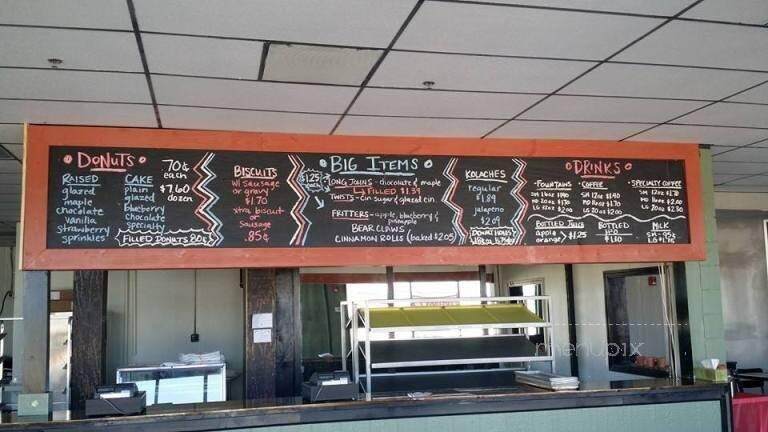 DONUTS
70¢
each
$7.60
dozen
RAISED
glazed
maple
chocolate
Vanilla
strawberry
sprinkles
CAKE
plain
glazed
blueberry
chocolate
specialty
FILLED DONUTS 80¢
BISCUITS
W/ sausage
or gravy
$1.70
xtra biscuit
or
sausage
.85¢
BIG ITEMS
$1.25
each
LONG JOHNS - chocolate & maple
FILLED $1.39
TWISTS - Cin sugar & glazed cin.
FRITTERS - apple, blueberry &
pineapple
BEAR CLAWS
CINNAMON ROLLS (baked $2.05)
KOLACHES
regular
$1.89
jalapeno
$2.09
DONUT HOLES
DRINKS
FOUNTAINS
LG 30oz $2.00
COFFEE
SM 12oz $1.40
LG 20oz $2.00
SPECIALTY COFFEE
SM 12oz $1.70
LG 20oz $2.50
BOTTLED JUICE
apple
orange
$1.25
BOTTLED
H2O
$1.50
MILK
SM - 95¢
menupix